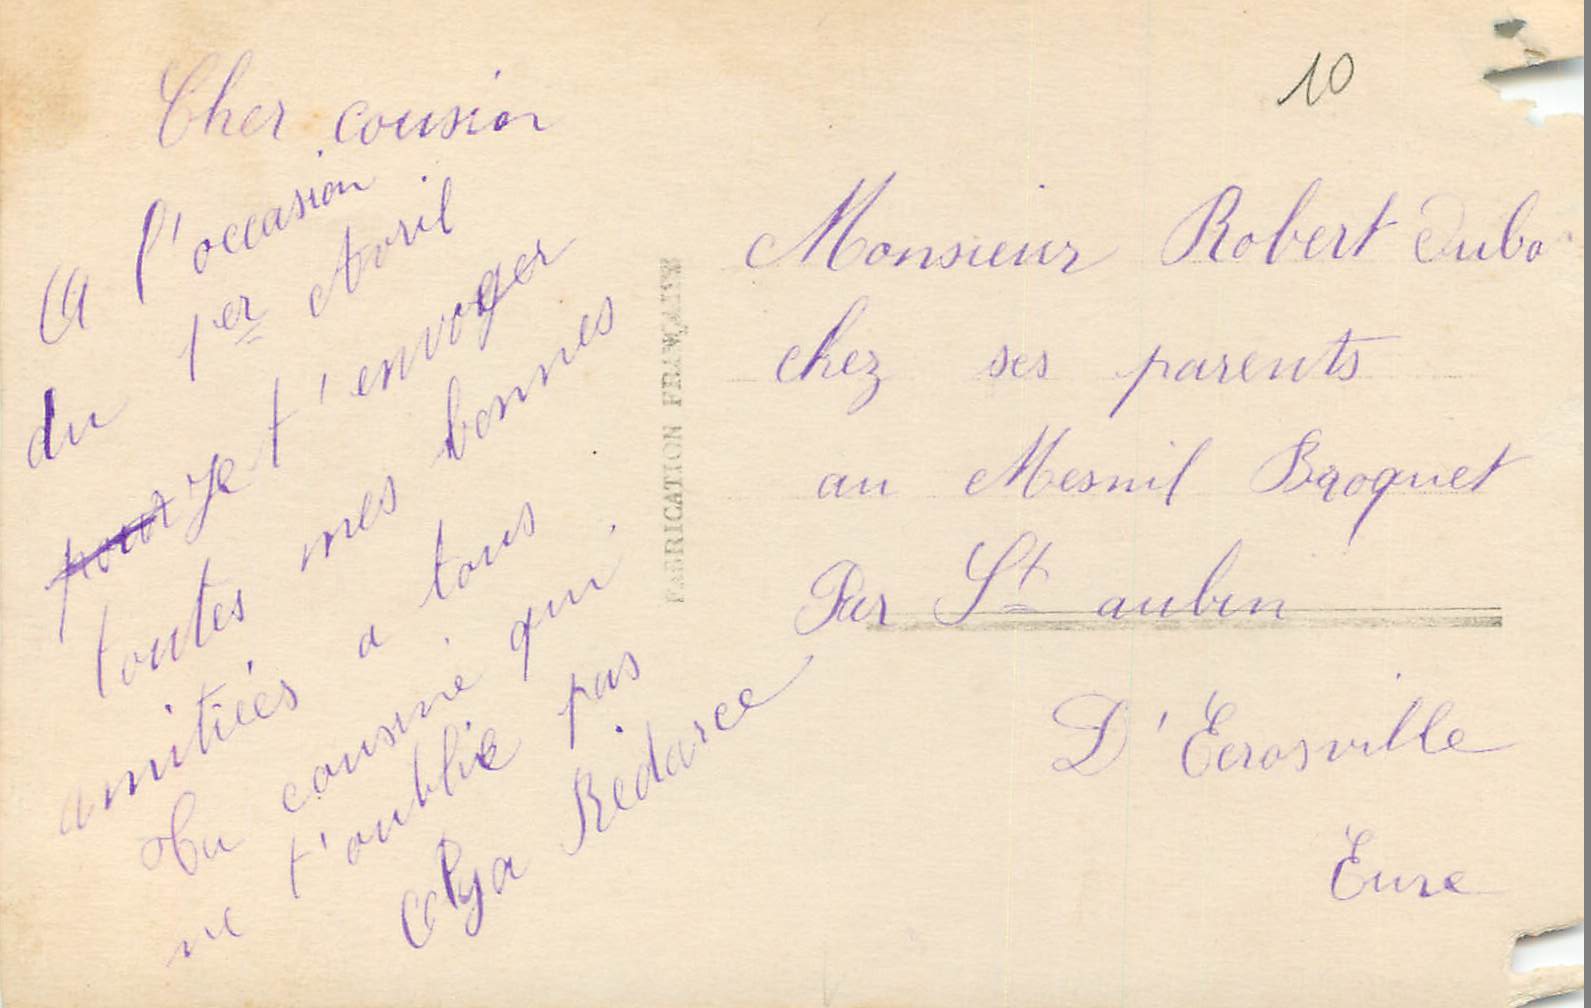 Cher cousin
A l'occasion
du 1er Avril
pour je t'envoyer
toutes mes bonnes
amitiés a tous
Ta cousine qui
ne t'oublie pas
Olga Rédarce
FABRICATION FRANÇAISE
10
Monsieur Robert Dubo
chez ses parents
au Mesnil Broquet
Par St aubin
D'Ecrosville
Eure